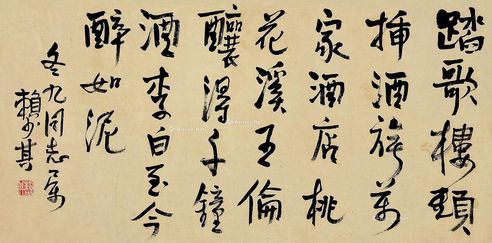 踏歌樓頭
插酒旂万
家酒店桃
花溪王倫
釀得千鐘
酒李白至今
醉如泥
冬九同志属
賴少其